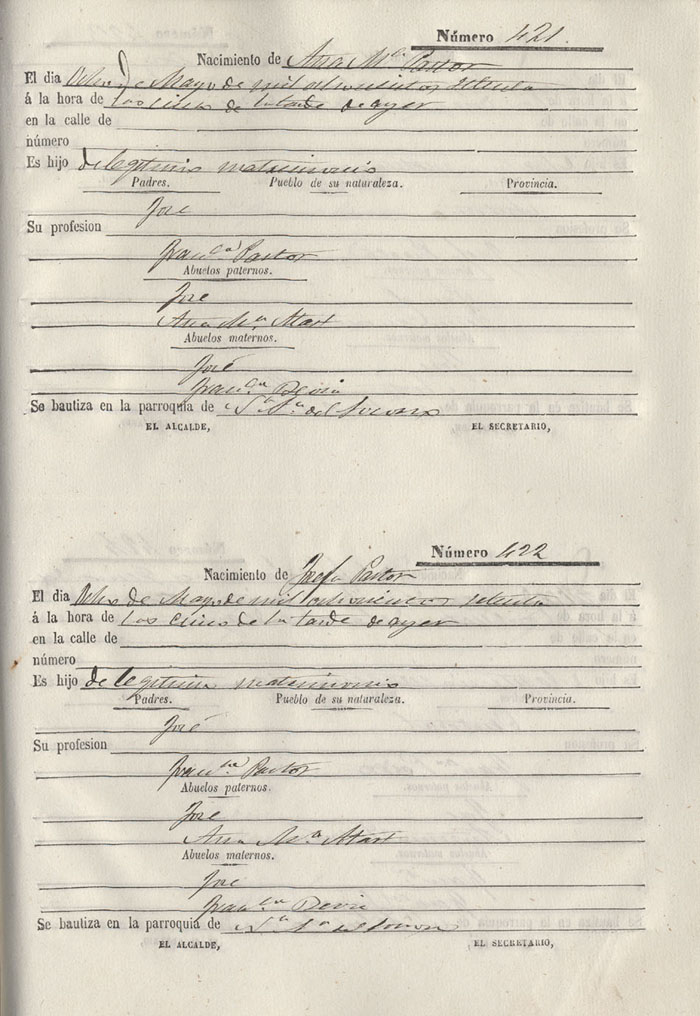 Número 421.
Nacimiento de Ana Mª Pastor
El dia Ocho de Mayo de mil ochocientos setenta
á la hora de las cinco de la tarde de ayer
en la calle de
número
Es hijo de legitimo matrimonio
Padres. Pueblo de su naturaleza. Provincia.
Jose
Su profesion
Francª Pastor
Abuelos paternos.
Jose
Ana Mª Mart
Abuelos maternos.
José
Francª Devia
Se bautiza en la parroquia de Nª Sª del Socorro
EL ALCALDE, EL SECRETARIO,
Número 422
Nacimiento de Josefa Pastor
El dia Ocho de Mayo de mil ochocientos setenta
á la hora de las cinco de la tarde de ayer
en la calle de
número
Es hijo de legitimo matrimonio
Padres. Pueblo de su naturaleza. Provincia.
José
Su profesion
Francª Pastor
Abuelos paternos.
Jose
Ana Mª Mart
Abuelos maternos.
Jose
Francª Devia
Se bautiza en la parroquia de Nª Sª del Socorro
EL ALCALDE, EL SECRETARIO,